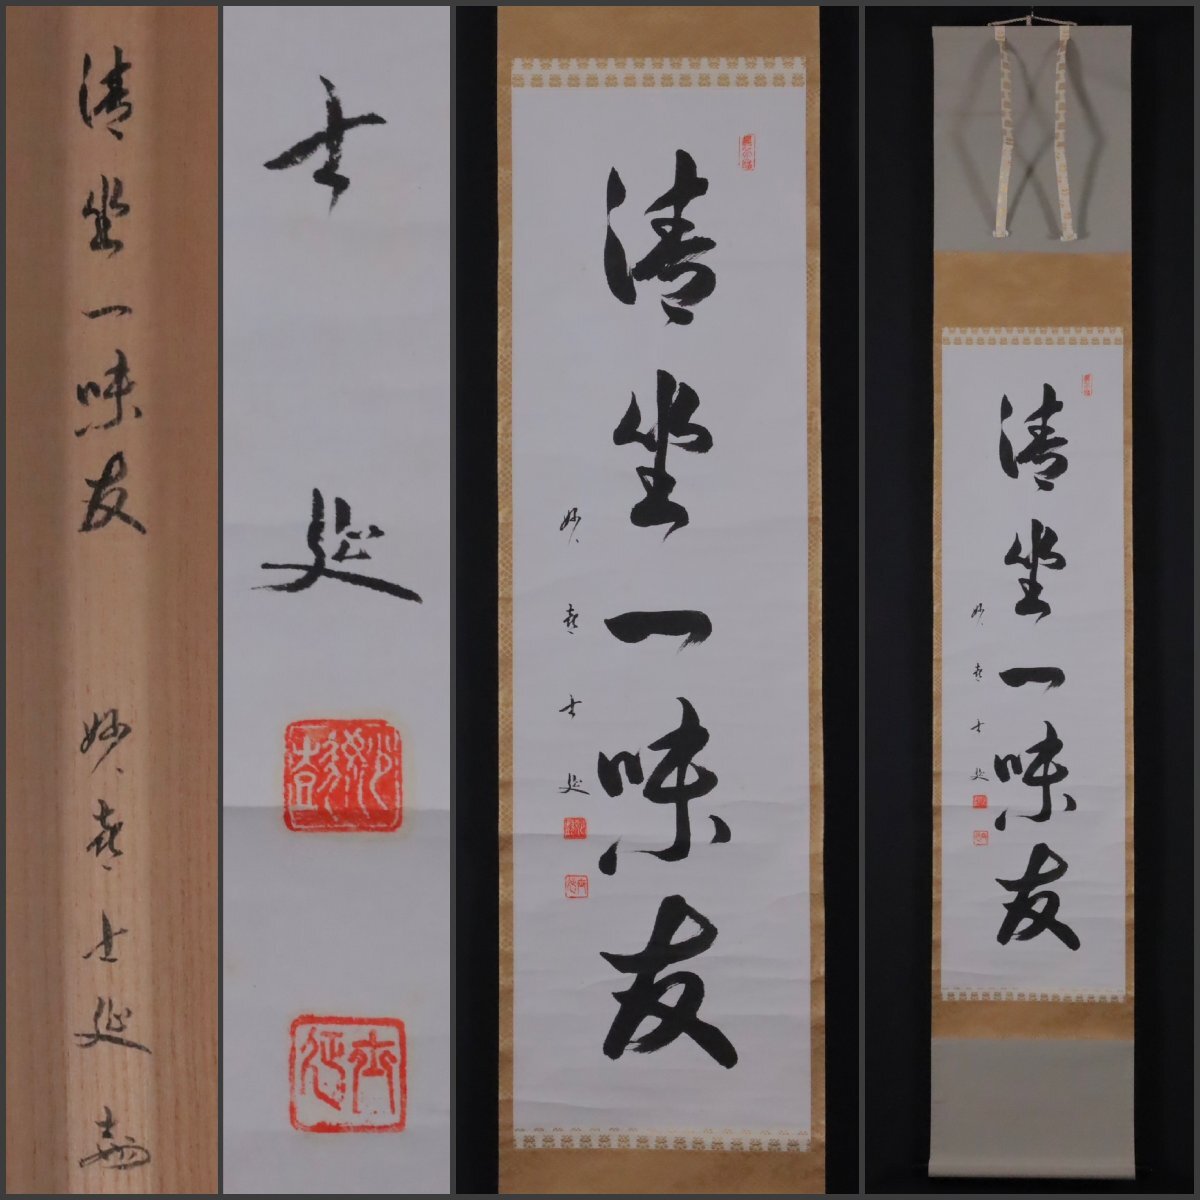 清坐一味友
妙喜士延
士延
清坐一味友
妙喜士延
清坐一味友
妙喜士延